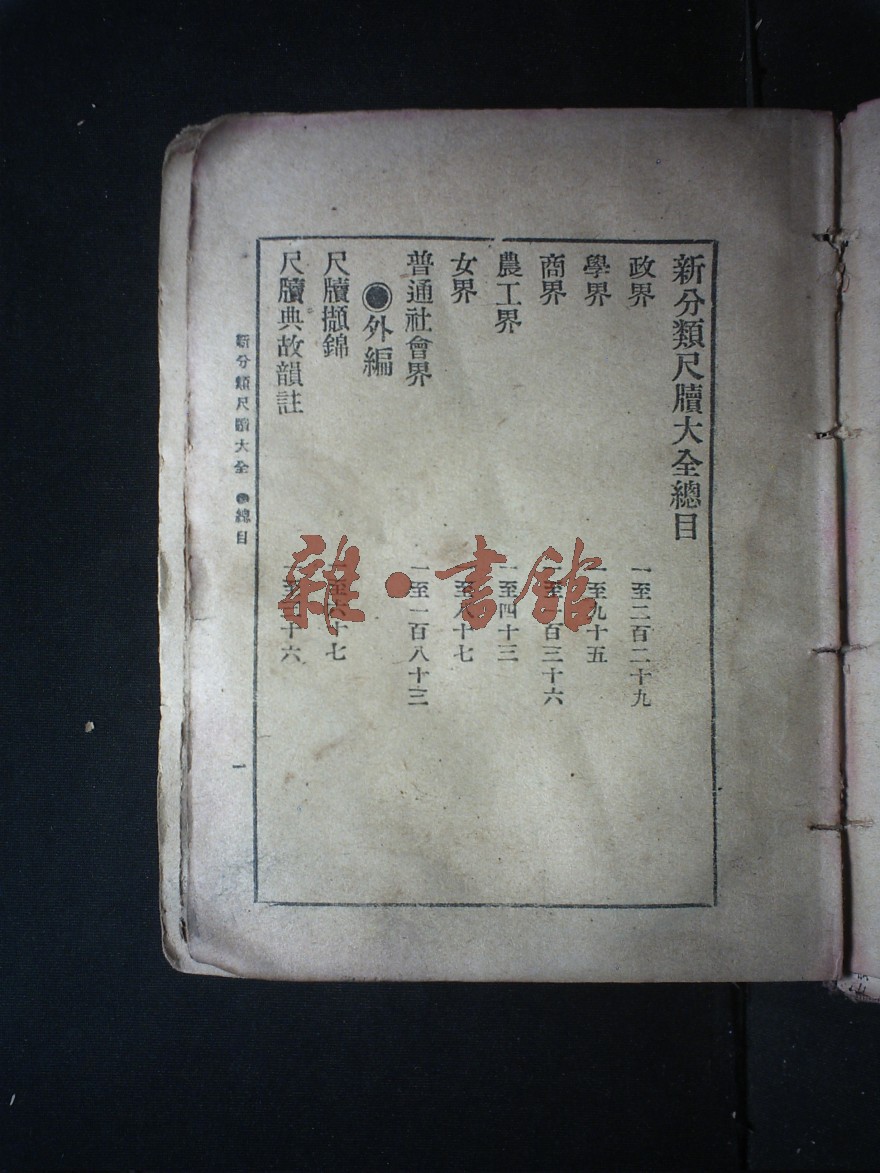 新分類尺牘大全總目
政界 一至二百二十九
學界 一至九十五
商界 一至一百三十六
農工界 一至四十三
女界 一至八十七
普通社會界 一至一百八十三
●外編
尺牘擷錦 一至六十七
尺牘典故韻註 一至 十六
新分類尺牘大全 ●總目 一
雜·書館